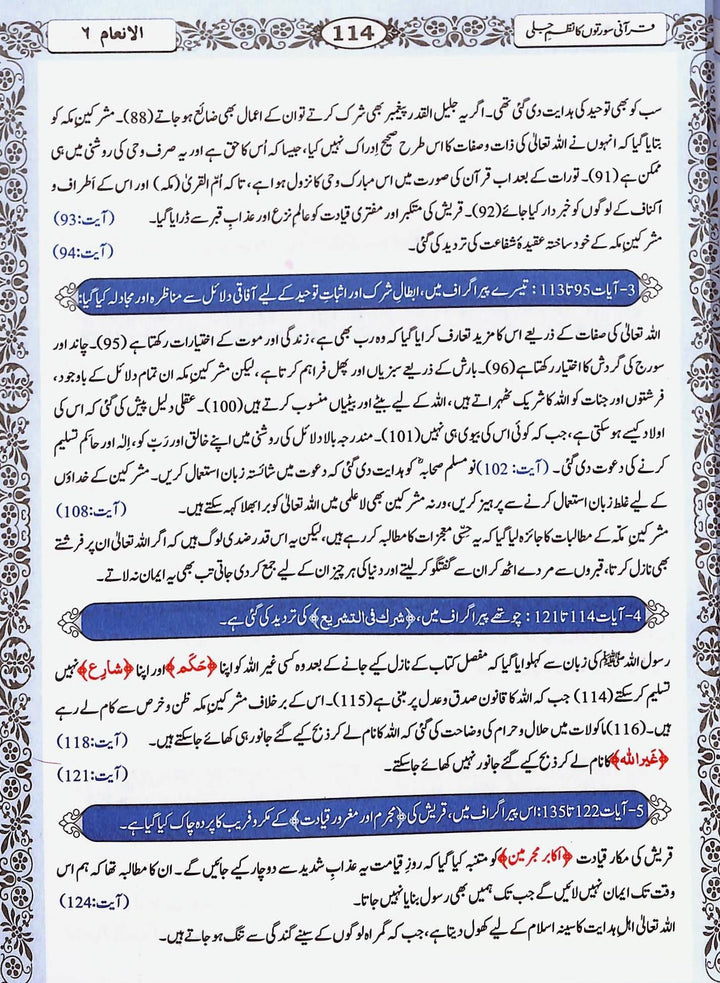 قرآنی سورتوں کا نظمِ جلی
114
الانعام ۶
سب کو بھی توحید کی ہدایت دی گئی تھی۔ اگر یہ جلیل القدر پیغمبر بھی شرک کرتے تو ان کے اعمال بھی ضائع ہو جاتے (88)۔ مشرکینِ مکہ کو
بتایا گیا کہ انہوں نے اللہ تعالیٰ کی ذات و صفات کا اس طرح صحیح اِدراک نہیں کیا، جیسا کہ اُس کا حق ہے اور یہ صرف وحی کی روشنی میں ہی
ممکن ہے (91)۔ تورات کے بعد اب قرآن کی صورت میں اس مبارک وحی کا نزول ہوا ہے، تاکہ اُمّ القریٰ (مکہ) اور اس کے اَطراف و
اکناف کے لوگوں کو خبردار کیا جائے (92)۔ قریش کی متکبر اور مفتری قیادت کو عالمِ نزع اور عذابِ قبر سے ڈرایا گیا۔ (آیت:93)
مشرکینِ مکہ کے خود ساختہ عقیدۂ شفاعت کی تردید کی گئی۔ (آیت:94)
3-آیات 95 تا 113 : تیسرے پیراگراف میں، ابطالِ شرک اور اثباتِ توحید کے لیے آفاقی دلائل سے مناظرہ اور مجادلہ کیا گیا:
اللہ تعالیٰ کی صفات کے ذریعے اس کا مزید تعارف کرایا گیا کہ وہ رب بھی ہے، زندگی اور موت کے اختیارات رکھتا ہے (95)۔ چاند اور
سورج کی گردش کا اختیار رکھتا ہے (96)۔ بارش کے ذریعے سبزیاں اور پھل فراہم کرتا ہے، لیکن مشرکینِ مکہ ان تمام دلائل کے باوجود،
فرشتوں اور جنات کو اللہ کا شریک ٹھہراتے ہیں، اللہ کے لیے بیٹے اور بیٹیاں منسوب کرتے ہیں (100)۔ عقلی دلیل پیش کی گئی کہ اس کی
اولاد کیسے ہو سکتی ہے، جب کہ کوئی اس کی بیوی ہی نہیں (101)۔ مندرجہ بالا دلائل کی روشنی میں اپنے خالق اور رَبّ کو، اِلٰہ اور حاکم تسلیم
کرنے کی دعوت دی گئی۔ (آیت: 102) نو مسلم صحابہؓ کو ہدایت دی گئی کہ دعوت میں شائستہ زبان استعمال کریں۔ مشرکین کے خداؤں
کے لیے غلط زبان استعمال کرنے سے پرہیز کریں، ورنہ مشرکین بھی لاعلمی میں اللہ تعالیٰ کو برا بھلا کہہ سکتے ہیں۔ (آیت:108)
مشرکینِ مکّہ کے مطالبات کا جائزہ لیا گیا کہ یہ حِسّی معجزات کا مطالبہ کر رہے ہیں، لیکن یہ اس قدر ضدی لوگ ہیں کہ اگر اللہ تعالیٰ ان پر فرشتے
بھی نازل کرتا، قبروں سے مردے اٹھ کر ان سے گفتگو کر لیتے اور دنیا کی ہر چیز ان کے لیے جمع کر دی جاتی تب بھی یہ ایمان نہ لاتے۔
4-آیات 114 تا 121 : چوتھے پیراگراف میں، ﴿شرك فی التشریع﴾ کی تردید کی گئی ہے۔
رسول اللہ ﷺ کی زبان سے کہلوایا گیا کہ مفصل کتاب کے نازل کیے جانے کے بعد وہ کسی غیر اللہ کو اپنا ﴿حَكَم﴾ اور اپنا ﴿شارِع﴾ نہیں
تسلیم کر سکتے (114) جب کہ اللہ کا قانون صدق و عدل پر مبنی ہے (115)۔ اس کے برخلاف مشرکینِ مکہ ظن و خرص سے کام لے رہے
ہیں۔ (116) ماکولات میں حلال و حرام کی وضاحت کی گئی کہ اللہ کا نام لے کر ذبح کیے گئے جانور ہی کھائے جا سکتے ہیں۔ (آیت:118)
﴿غَیر الله﴾ کا نام لے کر ذبح کیے گئے جانور نہیں کھائے جا سکتے۔ (آیت:121)
5-آیات 122 تا 135: اس پیراگراف میں، قریش کی ﴿مجرم اور مغرور قیادت﴾ کے مکر و فریب کا پردہ چاک کیا گیا ہے۔
قریش کی مکار قیادت ﴿اکابر مجرمین﴾ کو متنبہ کیا گیا کہ روزِ قیامت یہ عذابِ شدید سے دوچار کیے جائیں گے۔ ان کا مطالبہ تھا کہ ہم اس
وقت تک ایمان نہیں لائیں گے جب تک ہمیں بھی رسول بنایا نہیں جاتا۔ (آیت:124)
اللہ تعالیٰ اہلِ ہدایت کا سینہ اسلام کے لیے کھول دیتا ہے، جب کہ گمراہ لوگوں کے سینے گندگی سے تنگ ہو جاتے ہیں۔